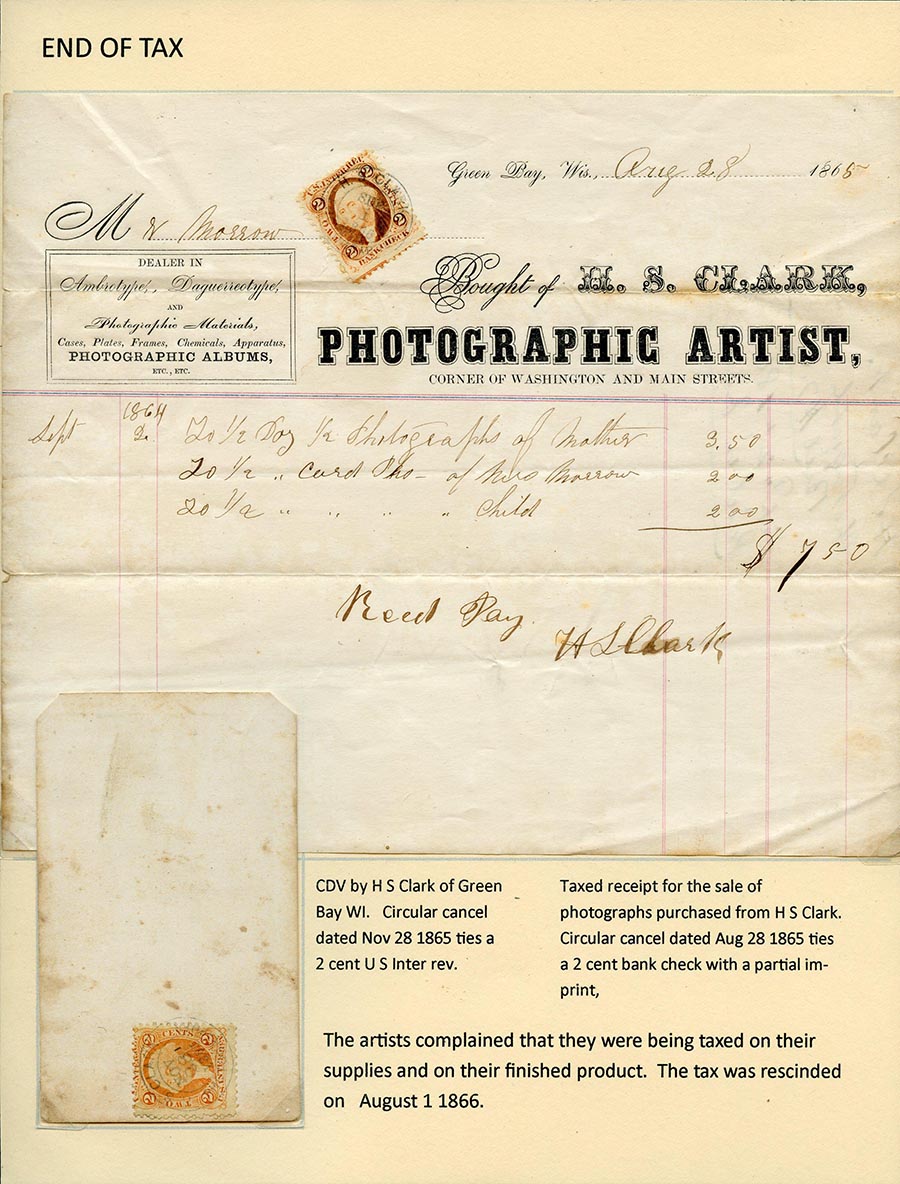 END OF TAX
Green Bay, Wis., Aug 28 1865
M W Morrow
U.S. INTER.REV.
2 CENTS 2
BANK CHECK
H S CLARK
DEALER IN
Ambrotype, Daguerreotype,
AND
Photographic Materials,
Cases, Plates, Frames, Chemicals, Apparatus,
PHOTOGRAPHIC ALBUMS,
ETC., ETC.
Bought of H. S. CLARK,
PHOTOGRAPHIC ARTIST,
CORNER OF WASHINGTON AND MAIN STREETS.
1864
Sept 2. To 1/2 Doz 1/2 Photographs of Mother 3.50
To 1/2 " Card Pho- of Mrs Morrow 2 00
To 1/2 " " " " Child 2 00
$ 7 50
Recd Pay.
H S Clark
CDV by H S Clark of Green
Bay WI. Circular cancel
dated Nov 28 1865 ties a
2 cent U S Inter rev.
Taxed receipt for the sale of
photographs purchased from H S Clark.
Circular cancel dated Aug 28 1865 ties
a 2 cent bank check with a partial im-
print,
2 CENTS 2
The artists complained that they were being taxed on their
supplies and on their finished product. The tax was rescinded
on August 1 1866.